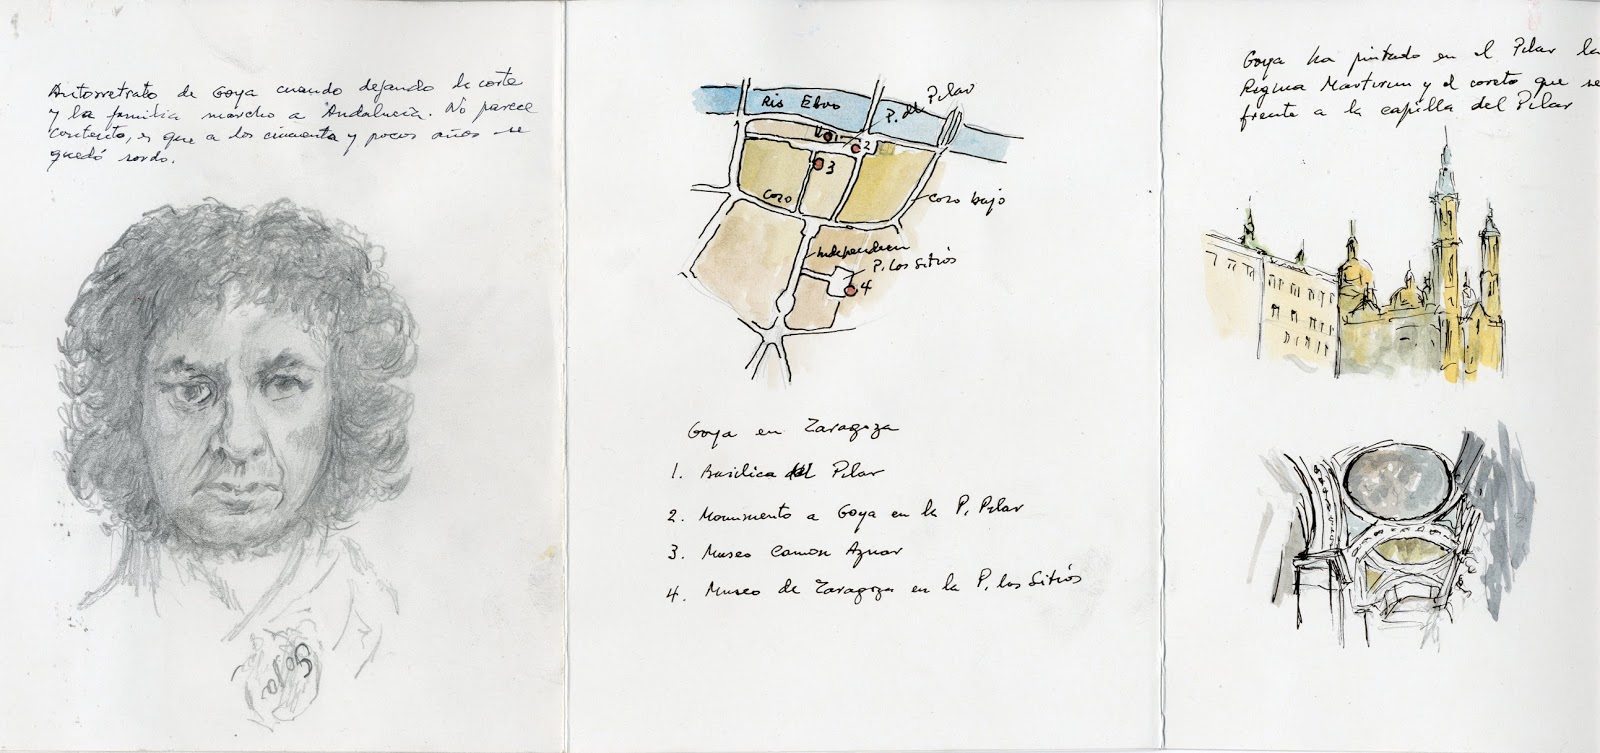 Autorretrato de Goya cuando dejando la corte
y la familia marcho a Andalucía. No parece
contento, es que a los cincuenta y pocos años se
quedó sordo.
Goya
Rio Ebro
P. del Pilar
1
2
3
Coso
Coso bajo
Independen
P. los Sitios
4
Goya en Zaragoza
1. Basilica del Pilar
2. Monumento a Goya en la P. Pilar
3. Museo Camon Aznar
4. Museo de Zaragoza en la P. los Sitios
Goya ha pintado en el Pilar la
Regina Martirum y el coreto que se
frente a la capilla del Pilar